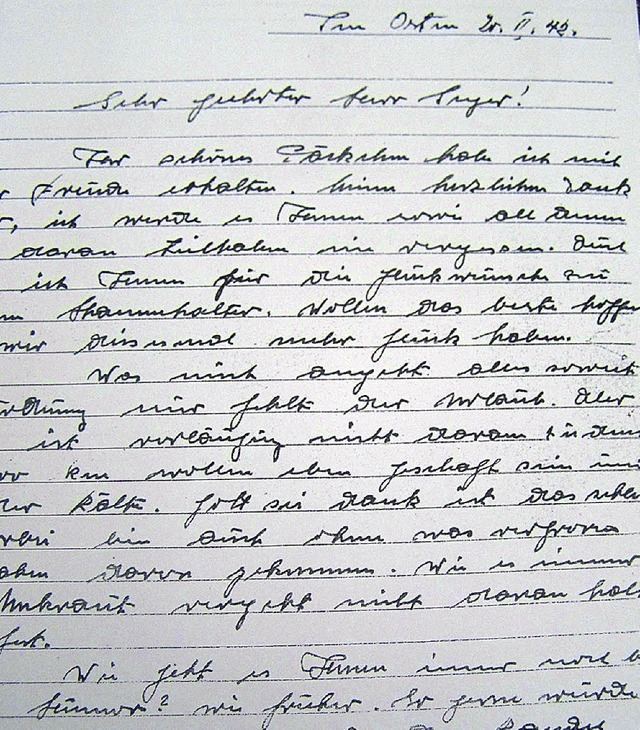 Im Osten 20. II. 42.
Sehr geehrter Herr Preyer!
Ihr schönes Päckchen habe ich mit
Freude erhalten. Einen herzlichen Dank
, ich werde es Ihnen sowie all denen
daran teilhaben nie vergessen. Auch
ich Ihnen für die Glückwünsche zu
m Stammhalter. Wollen das beste hoffe
wir diesesmal mehr Glück haben.
Was mich angeht alles soweit
Ordnung nur fehlt der Urlaub. Aber
ist vorläufig nicht daran zu denk
km wollen eben geschaft sein un
der Kälte. Gott sei dank ist das
bei bin auch ohne was erfrore
haben davon gekommen. Wie es immer
Unkraut vergeht nicht daran halt
fest.
Wie geht es Ihnen immer noch b
Humor? wie früher. So gerne würde